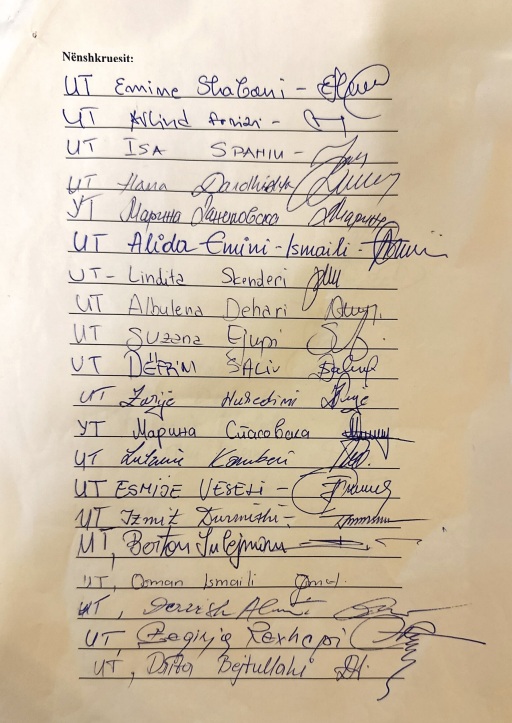 Nënshkruesit:
UT Emine Shabani -
UT Arlind -
UT ISA SPAHIU -
UT Hana
УТ Марина
UT Alida Emini - Ismaili -
UT - Lindita Skenderi
UT Albulena Dehari
UT Suzana Ejupi
UT DEFRIM SALIU
UT Zarije Nuredini
УТ Марина Спасовска
UT Kamberi
UT ESMIJE VESELI -
UT Izmit Durmishi -
UT, Berton Sulejmani
UT, Osman Ismaili
UT, Dervish
UT, Zeqirja Rexhepi
UT, Drita Bejtullahi